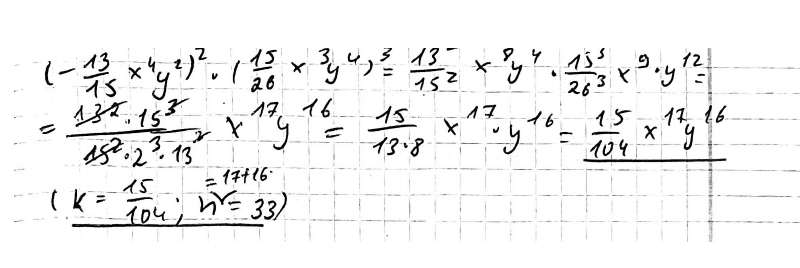 (- 13/15 x⁴y²)² · (15/26 x³y⁴)³ = 13²/15² x⁸y⁴ · 15³/26³ x⁹ · y¹² =
= 13² · 15³ / 15² · 2³ · 13² x¹⁷y¹⁶ = 15/13·8 x¹⁷ · y¹⁶ = 15/104 x¹⁷y¹⁶
(K = 15/104 ; n = 17+16 = 33)